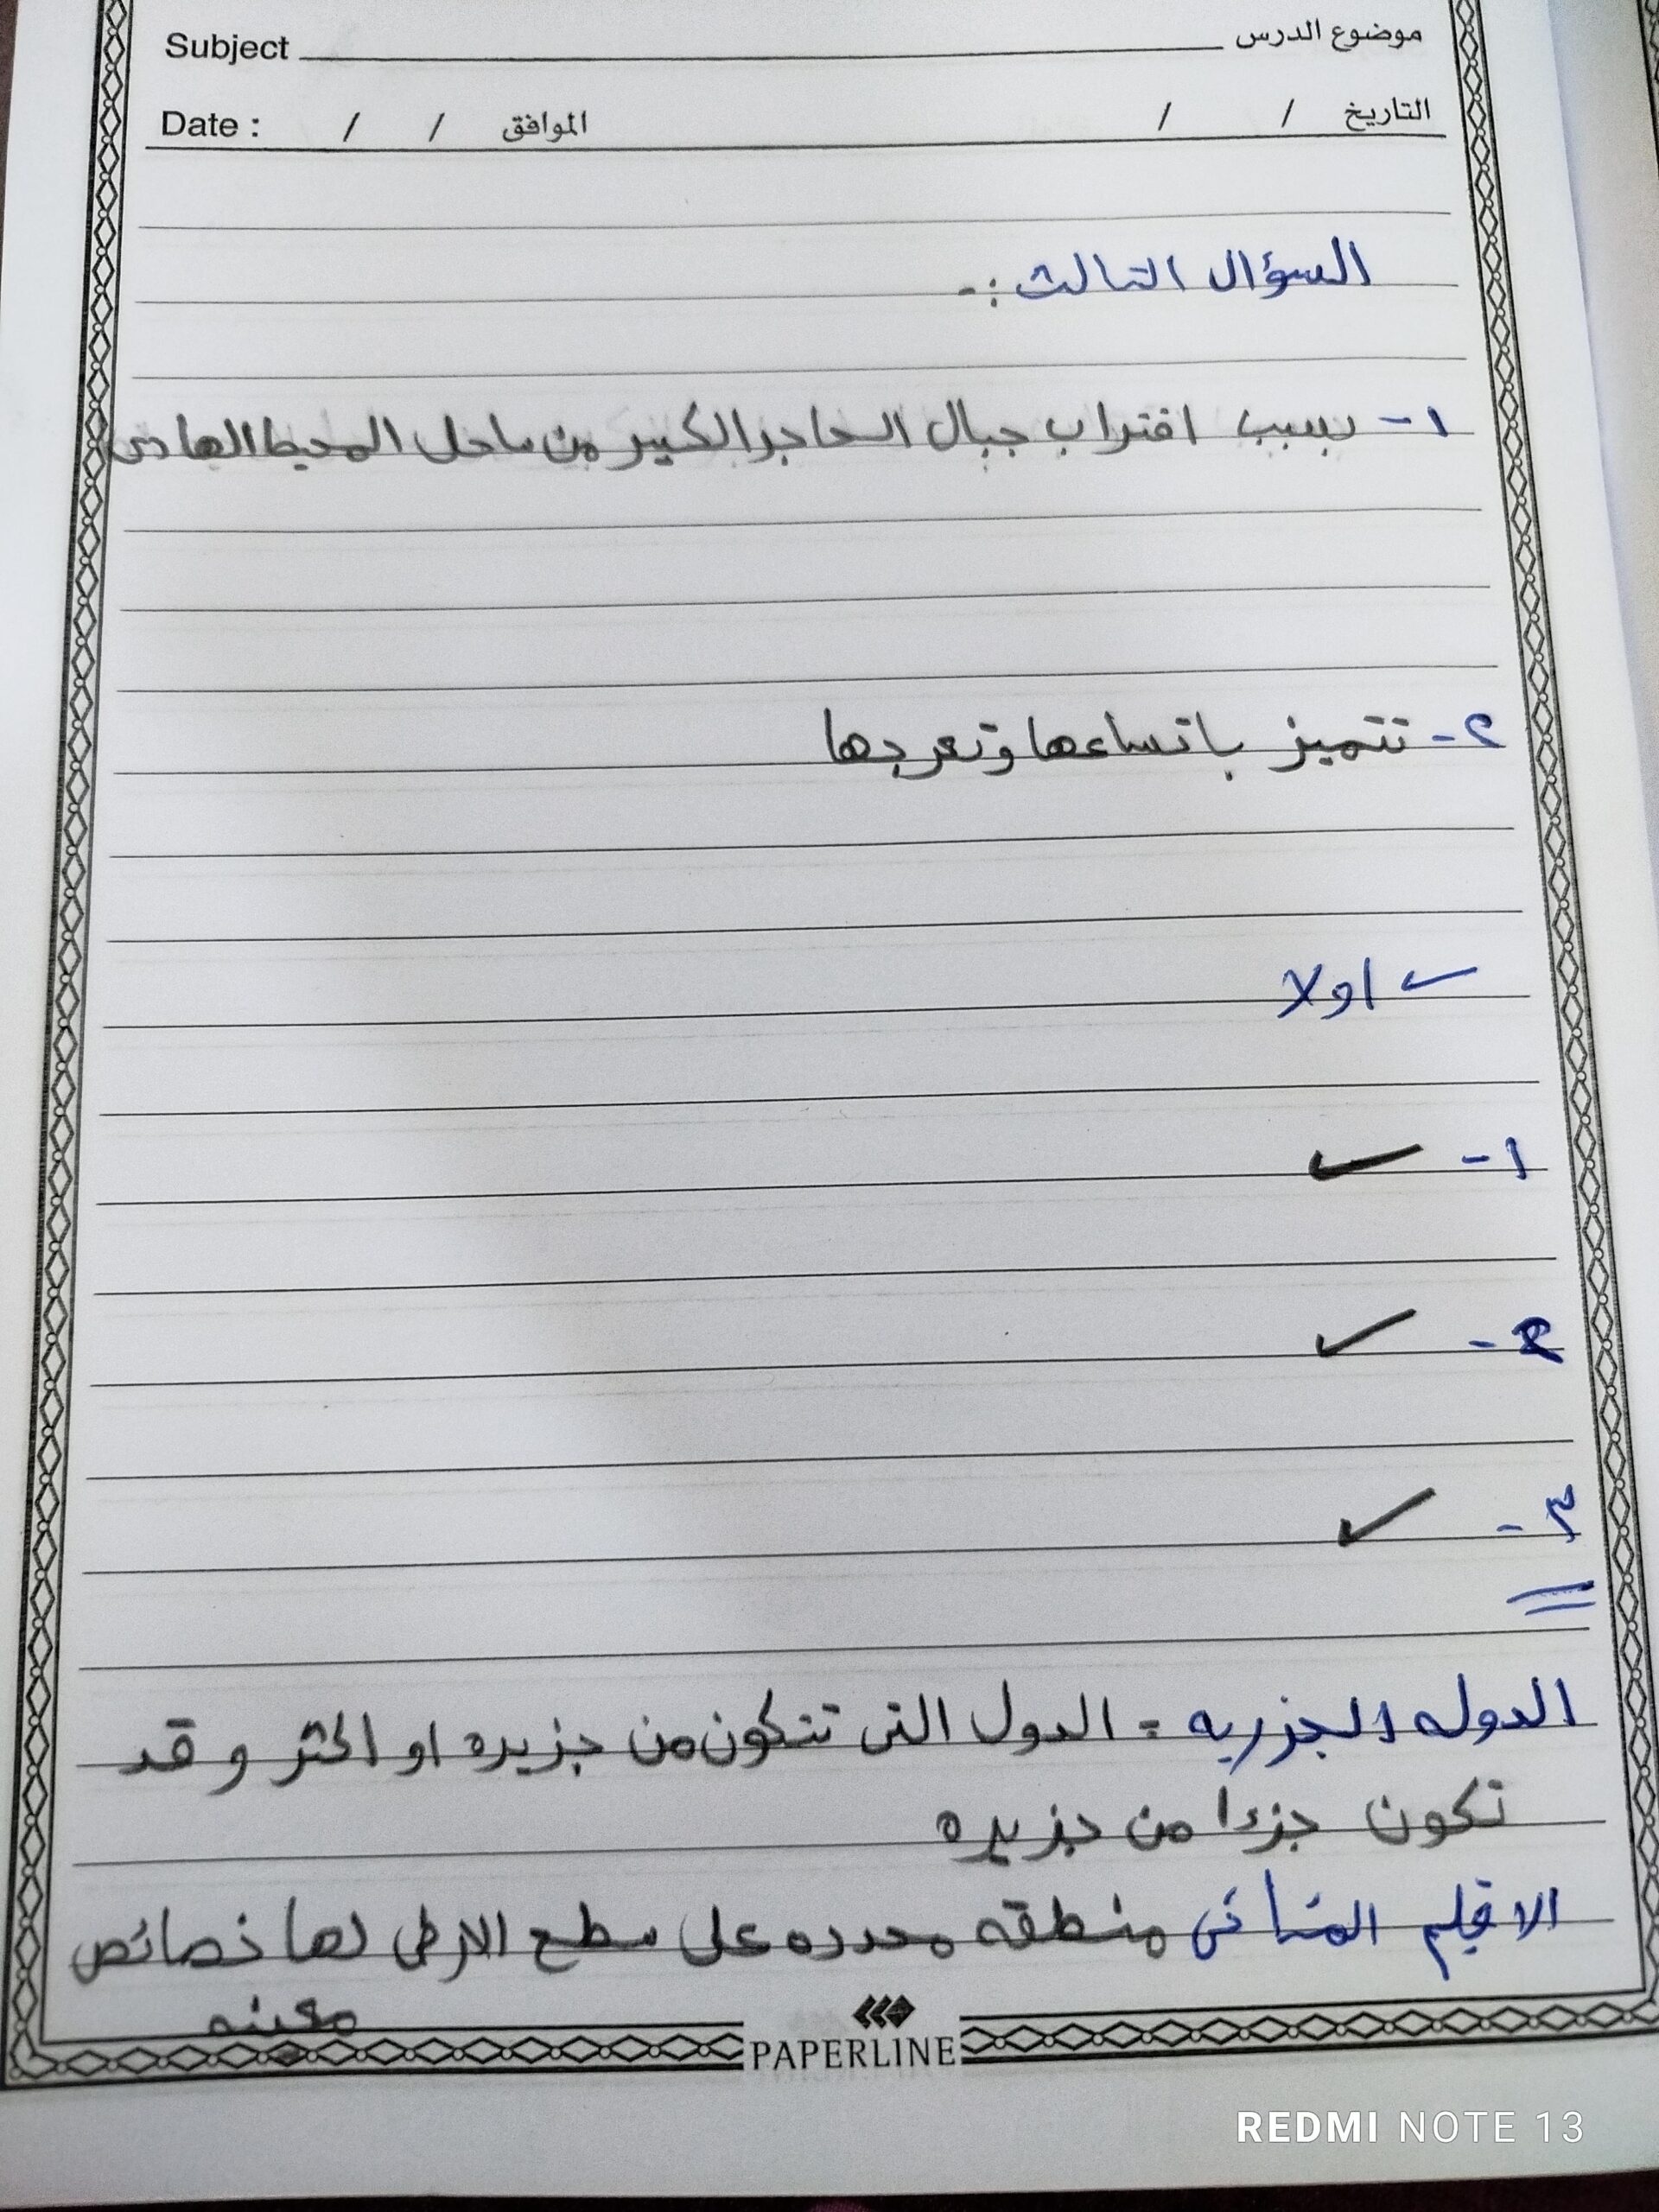 Subject موضوع الدرس
Date : / / الموافق / / التاريخ
السؤال الثالث :-
١- بسبب اقتراب جبال الحاجز الكبير من ساحل المحيط الهادى
٢- تتميز باتساعها وتعرجها
اولا
١- ✓
٢- ✓
٣- ✓
الدوله الجزريه = الدول التى تتكون من جزيره او اكثر وقد
تكون جزءا من جزيره
الاقليم المناخى منطقه محدده على سطح الارض لها خصائص
معينه
PAPERLINE
REDMI NOTE 13